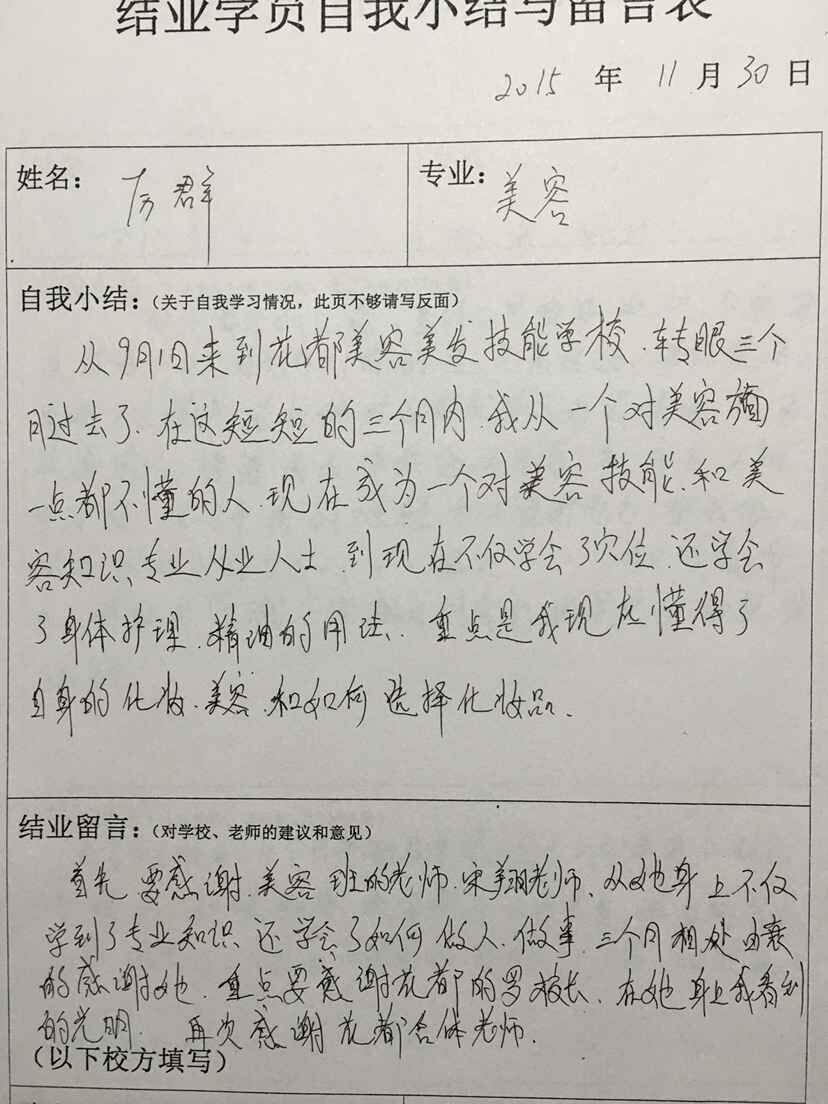 结业学员自我小结与留言表
2015 年 11 月 30 日
姓名： 厉群
专业： 美容
自我小结：（关于自我学习情况，此页不够请写反面）
从9月1日来到花都美容美发技能学校.转眼三个
月过去了.在这短短的三个月内.我从一个对美容
一点都不懂的人.现在成为一个对美容技能.和美
容知识专业从业人士.到现在不仅学会了穴位.还学会
了身体护理.精油的用法.重点是我现在懂得了
自身的化妆.美容.和如何选择化妆品.
结业留言：（对学校、老师的建议和意见）
首先要感谢.美容班的老师.宋翔老师、从她身上不仅
学到了专业知识还学会了如何做人.做事.三个月相处由衷
的感谢她.重点要感谢花都的罗校长、在她身上我看到
的光明.再次感谢花都全体老师.
（以下校方填写）